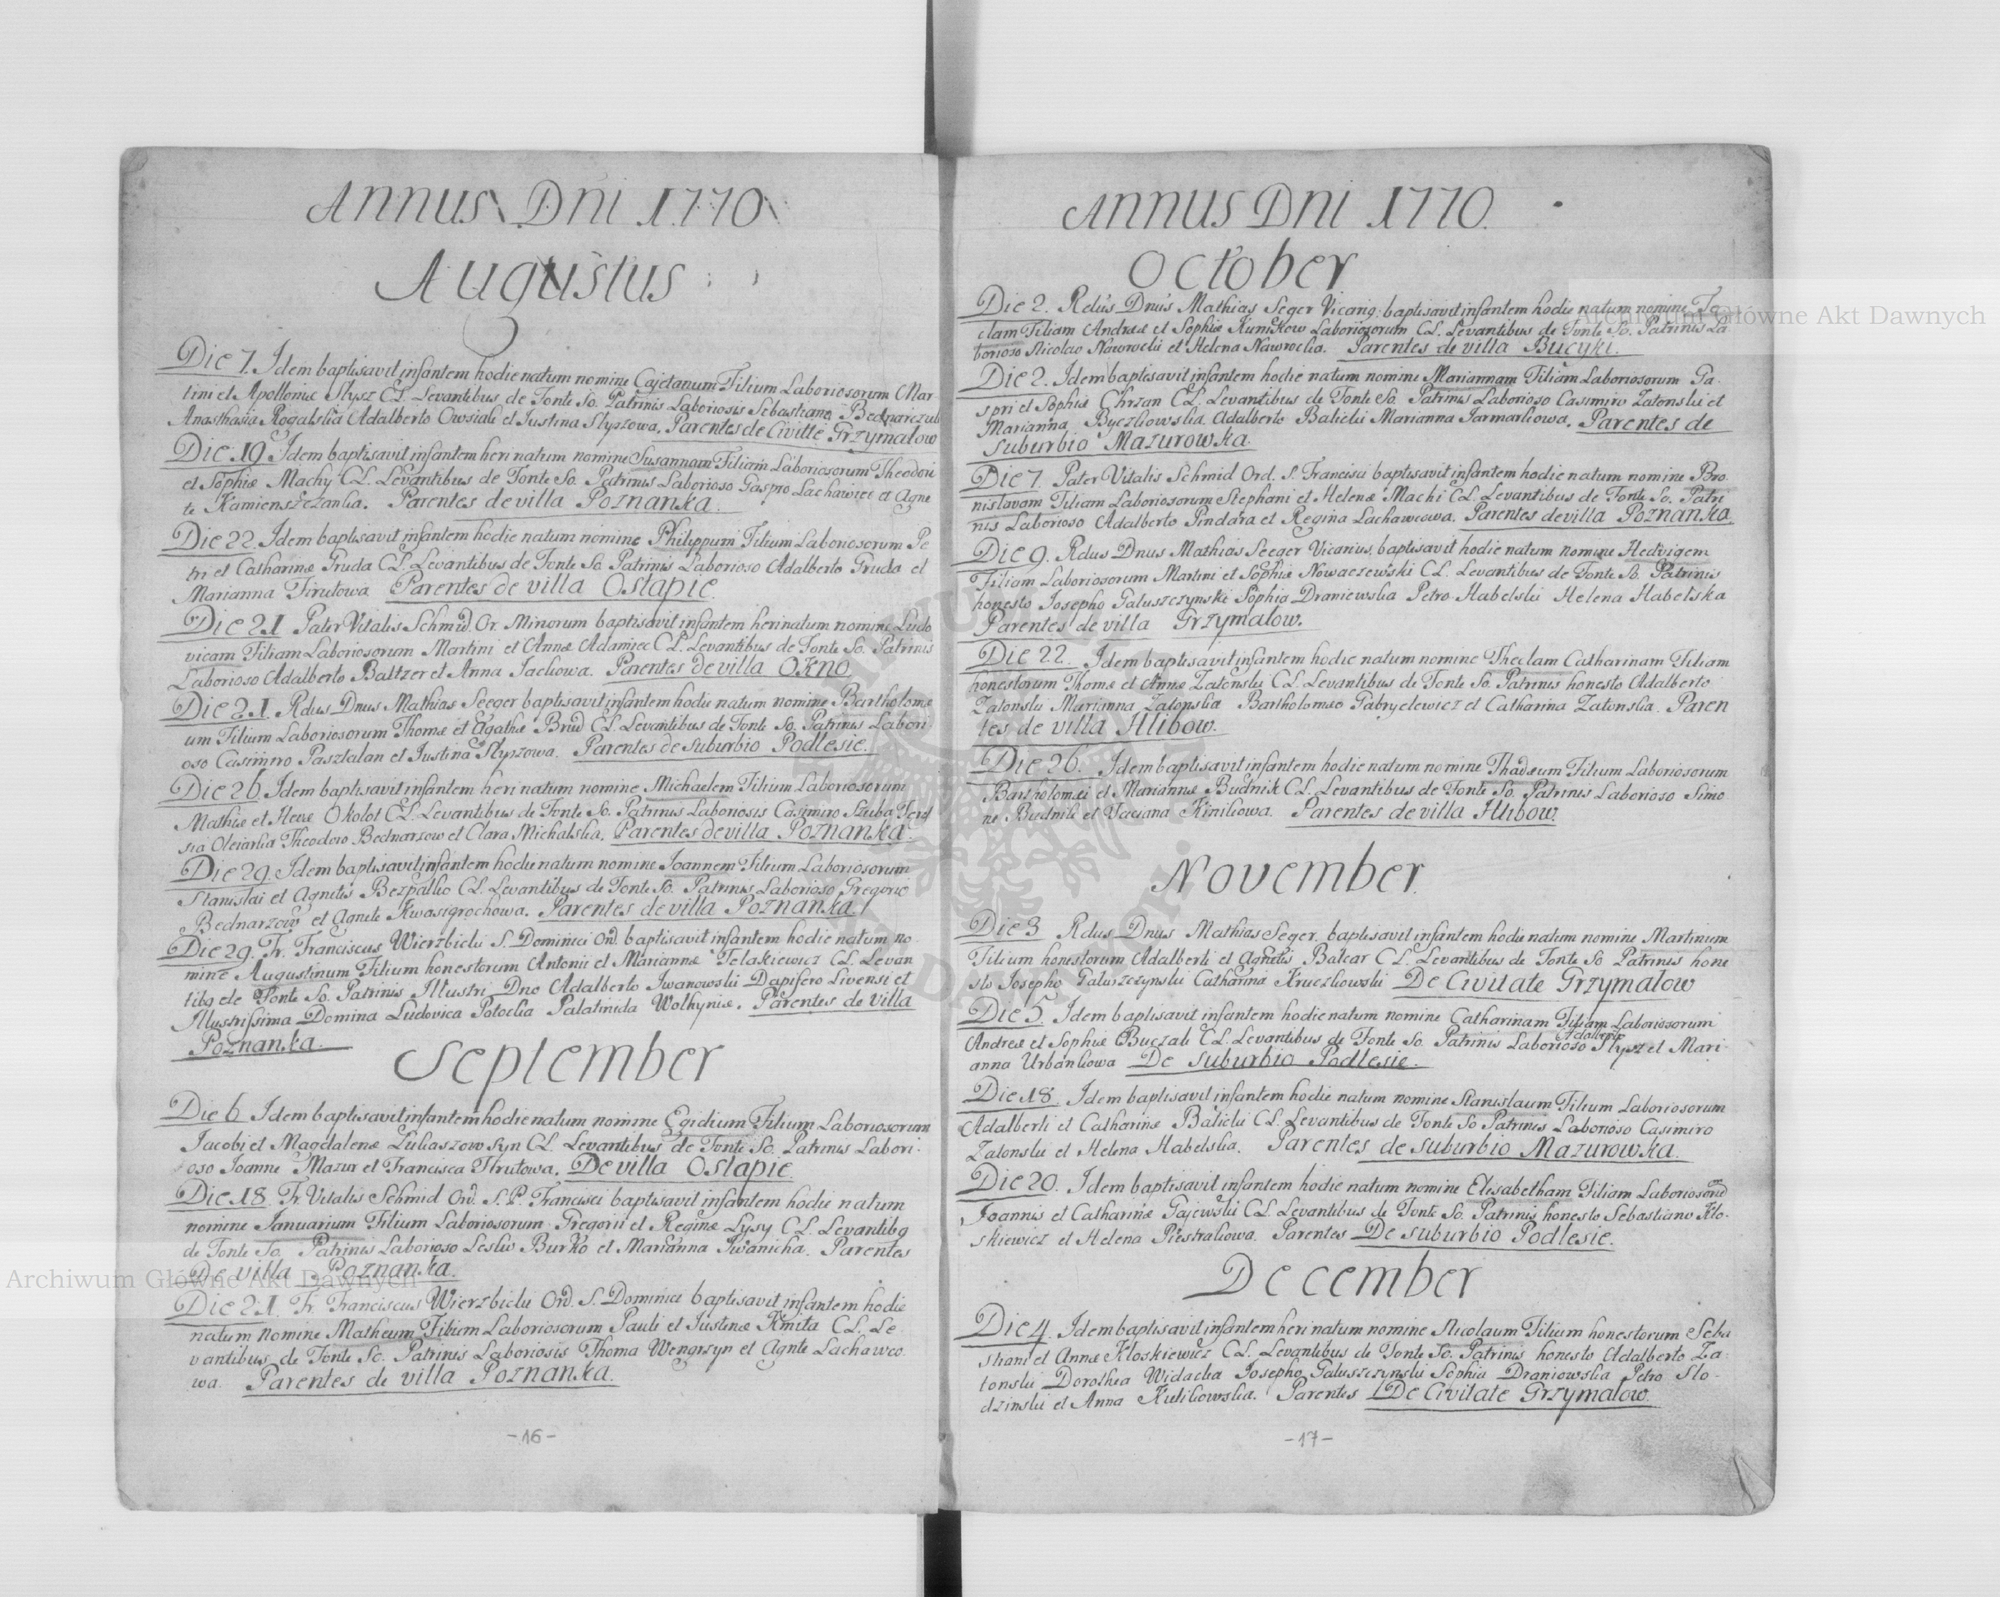 Annus Dni 1770
Augustus
Die 7. Idem baptisavit infantem hodie natum nomine Cajetanum Filium Laboriosorum Mar
tini et Apolloniæ Slysz CL. Levantibus de Fonte So. Patrinis Laboriosis Sebastiano Bednarczuk
Anasthasia Rogalskia Adalberto Owsiak et Justina Slyszowa. Parentes de Civitte Grzymalow
Die 19. Idem baptisavit infantem heri natum nomine Susannam Filiam Laboriosorum Theodori
et Sophiæ Machy CL. Levantibus de Fonte So. Patrinis Laborioso Gaspro Lachawiec et Agne
te Kamienszczanka. Parentes de villa Poznanka.
Die 22. Idem baptisavit infantem hodie natum nomine Philippum Filium Laboriosorum Pe
tri et Catharinæ Gruda CL. Levantibus de Fonte So. Patrinis Laborioso Adalberto Gruda et
Marianna Firutowa Parentes de villa Ostapie.
Die 21 Pater Vitalis Schmid Or. Minorum baptisavit infantem heri natum nomine Ludo
vicam Filiam Laboriosorum Martini et Annæ Adamiec CL. Levantibus de Fonte So. Patrinis
Laborioso Adalberto Baltzer et Anna Jackowa. Parentes de villa Okno
Die 21. Rdus Dnus Mathias Seeger baptisavit infantem hodie natum nomine Bartholomæ
um Filium Laboriosorum Thomæ et Agathæ Brud CL. Levantibus de Fonte So. Patrinis Labori
oso Casimiro Pasztalan et Justina Slyszowa. Parentes de suburbio Podlesie.
Die 26 Idem baptisavit infantem heri natum nomine Michaelem Filium Laboriosorum
Mathiæ et Hevæ Okolot CL. Levantibus de Fonte So. Patrinis Laboriosis Casimiro Sluba
sia Olejarka Theodoro Bednarzow et Clara Michalska. Parentes de villa Poznanka.
Die 29. Idem baptisavit infantem hodie natum nomine Joannem Filium Laboriosorum
Stanislai et Agnetis Bezpalko CL. Levantibus de Fonte So. Patrinis Laborioso Gregorio
Bednarzow et Agnete Kwasigrochowa. Parentes de villa Poznanka.
Die 29. Fr. Franciscus Wierzbicki S. Dominici Ord. baptisavit infantem hodie natum no
mine Augustinum Filium honestorum Antonii et Mariannæ Felakiewicz CL. Levan
tibq de Fonte So. Patrinis Illustri Dno Adalberto Jwanowski Dapifero Livensi et
Illustrissima Domina Ludovica Potockia Palatinida Wolhyniæ. Parentes de villa
Poznanka.
September
Die 6 Idem baptisavit infantem hodie natum nomine Egidium Filium Laboriosorum
Jacobi et Magdalenæ Lukaszow Syn CL. Levantibus de Fonte So. Patrinis Labori-
oso Joanne Mazur et Francisca Hrutowa. De villa Ostapie.
Die 18. Fr Vitalis Schmid Ord. S. P. Francisci baptisavit infantem hodie natum
nomine Januarium Filium Laboriosorum Gregorii et Reginæ Lysy CL. Levantibq
de Fonte So. Patrinis Laborioso Lesko Burko et Marianna Jwanicha. Parentes
De villa Poznanka.
Die 21. Fr. Franciscus Wierzbicki Ord. S. Dominici baptisavit infantem hodie
natum nomine Matheum Filium Laboriosorum Pauli et Justinæ Kmita CL. Le
vantibus de Fonte So. Patrinis Laboriosis Thoma Wengrzyn et Agnte Lachawco
wa. Parentes de villa Poznanka.
-16-
Annus Dni 1770.
October
Die 2. Rdus Dnus Mathias Seger Vicariq: baptisavit infantem hodie natum nomine Te
clam Filiam Andreæ et Sophiæ Kuniskow Laboriosorum CL. Levantibus de Fonte So. Patrinis La
borioso Nicolao Nawrocki et Helena Nawrockia. Parentes de villa Bucyki.
Die 2. Idem baptisavit infantem hodie natum nomine Mariannam Filiam Laboriosorum Ga-
spri et Sophiæ Chrzan CL. Levantibus de Fonte So. Patrinis Laborioso Casimiro Zatonski et
Marianna Byczkowskia Adalberto Balicki Marianna Jarmarkowa. Parentes de
suburbio Mazurowka.
Die 7. Pater Vitalis Schmid Ord. S. Francisci baptisavit infantem hodie natum nomine Bro
nislavam Filiam Laboriosorum Stephani et Helenæ Machi CL. Levantibus de Fonte So. Patri
nis Laborioso Adalberto Pindara et Regina Lachawcowa. Parentes de villa Poznanka.
Die 9. Rdus Dnus Mathias Seeger Vicarius baptisavit hodie natum nomine Hedvigem
Filiam Laboriosorum Martini et Sophiæ Nowaczewski CL. Levantibus de Fonte So. Patrinis
honesto Josepho Galuszczynski Sophia Draniewskia Petro Habelski Helena Habelska
Parentes de villa Grzymalow.
Die 22. Idem baptisavit infantem hodie natum nomine Theclam Catharinam Filiam
honestorum Thomæ et Annæ Zatonski CL. Levantibus de Fonte So. Patrinis honesto Adalberto
Zatonski Marianna Zatonskia Bartholomæo Gabryelewicz et Catharina Zatonskia. Paren
tes de villa Hlibow.
Die 26. Idem baptisavit infantem hodie natum nomine Thadæum Filium Laboriosorum
Bartholomei et Mariannæ Budnik CL. Levantibus de Fonte So. Patrinis Laborioso Simo
ne Budnik et Kinikowa. Parentes de villa Hlibow
November.
Die 3 Rdus Dnus Mathias Seger baptisavit infantem hodie natum nomine Martinum
Filium honestorum Adalberti et Agnetis Balcar CL. Levantibus de Fonte So Patrinis hone
sto Josepho Galuszczynski Catharina Kruczkowski De Civitate Grzymalow
Die 5. Idem baptisavit infantem hodie natum nomine Catharinam Filiam Laboriosorum
Andreæ et Sophiæ Buczak CL. Levantibus de Fonte So. Patrinis Laborioso Adalberto Slysz et Mari-
anna Urbankowa De suburbio Podlesie.
Die 18. Idem baptisavit infantem hodie natum nomine Stanislaum Filium Laboriosorum
Adalberti et Catharinæ Balicki CL. Levantibus de Fonte So Patrinis Laborioso Casimiro
Zatonski et Helena Habelska. Parentes de suburbio Mazurowka.
Die 20. Idem baptisavit infantem hodie natum nomine Elisabetham Filiam Laboriosorum
Joannis et Catharinæ Gajewski CL. Levantibus de Fonte So. Patrinis honesto Sebastiano Klo-
skiewicz et Helena Piestrakowa. Parentes De suburbio Podlesie.
December
Die 4. Idem baptisavit infantem heri natum nomine Nicolaum Filium honestorum Seba
stiani et Annæ Kloskiewicz CL. Levantibus de Fonte So. Patrinis honesto Adalberto Za-
tonski Dorothea Widackia Josepho Galuszczynski Sophia Draniowskia Petro Slo-
dzinski et Anna Kulikowskia. Parentes De Civitate Grzymalow.
-17-
Archiwum Główne Akt Dawnych
Archiwum Główne Akt Dawnych